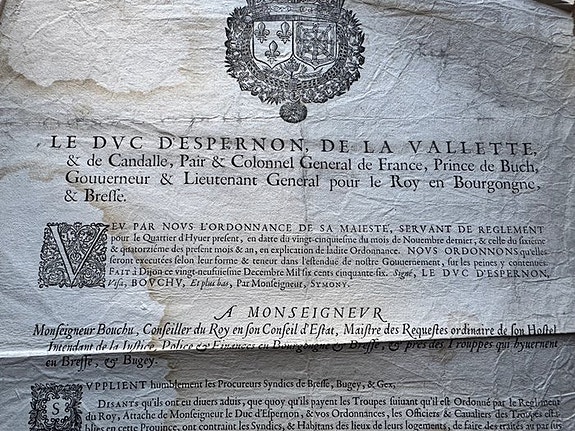 LE DVC D'ESPERNON, DE LA VALLETTE,
& de Candalle, Pair & Colonnel General de France, Prince de Buch,
Gouuerneur & Lieutenant General pour le Roy en Bourgongne,
& Bresse.
VEV PAR NOVS L'ORDONNANCE DE SA MAIESTE', SERVANT DE REGLEMENT
pour le Quartier d'Hyuer present, en datte du vingt-cinquiesme du mois de Nouembre dernier, & celle du sixiéme
& quatorziéme des present mois & an, en explication de ladite Ordonnance. NOUS ORDONNONS qu'elles
seront executées selon leur forme & teneur dans l'estenduë de nostre Gouuernement, sur les peines y contenuës.
FAIT à Dijon ce vingt-neufuiesme Decembre Mil six cents cinquante-six. Signé, LE DUC D'ESPERNON,
Visa, BOVCHV, Et plus bas, Par Monseigneur, SYMONY.
A MONSEIGNEVR
Monseigneur Bouchu, Conseiller du Roy en son Conseil d'Estat, Maistre des Requestes ordinaire de son Hostel
Intendant de la Iustice, Police & Finances en Bourgongne & Bresse, & prés des Trouppes qui hyuernent
en Bresse, & Bugey.
SVPPLIENT humblement les Procureurs Syndics de Bresse, Bugey, & Gex,
DISANTS qu'ils ont eu diuers aduis, que quoy qu'ils payent les Troupes suiuant qu'il est Ordonné par le Reglement
du Roy, Attache de Monseigneur le Duc d'Espernon, & vos Ordonnances, les Officiers & Caualiers des Troupes esta-
blies en cette Prouince, ont contraint les Syndics, & Habitans des lieux de leurs logements, de faire des traités au par sus